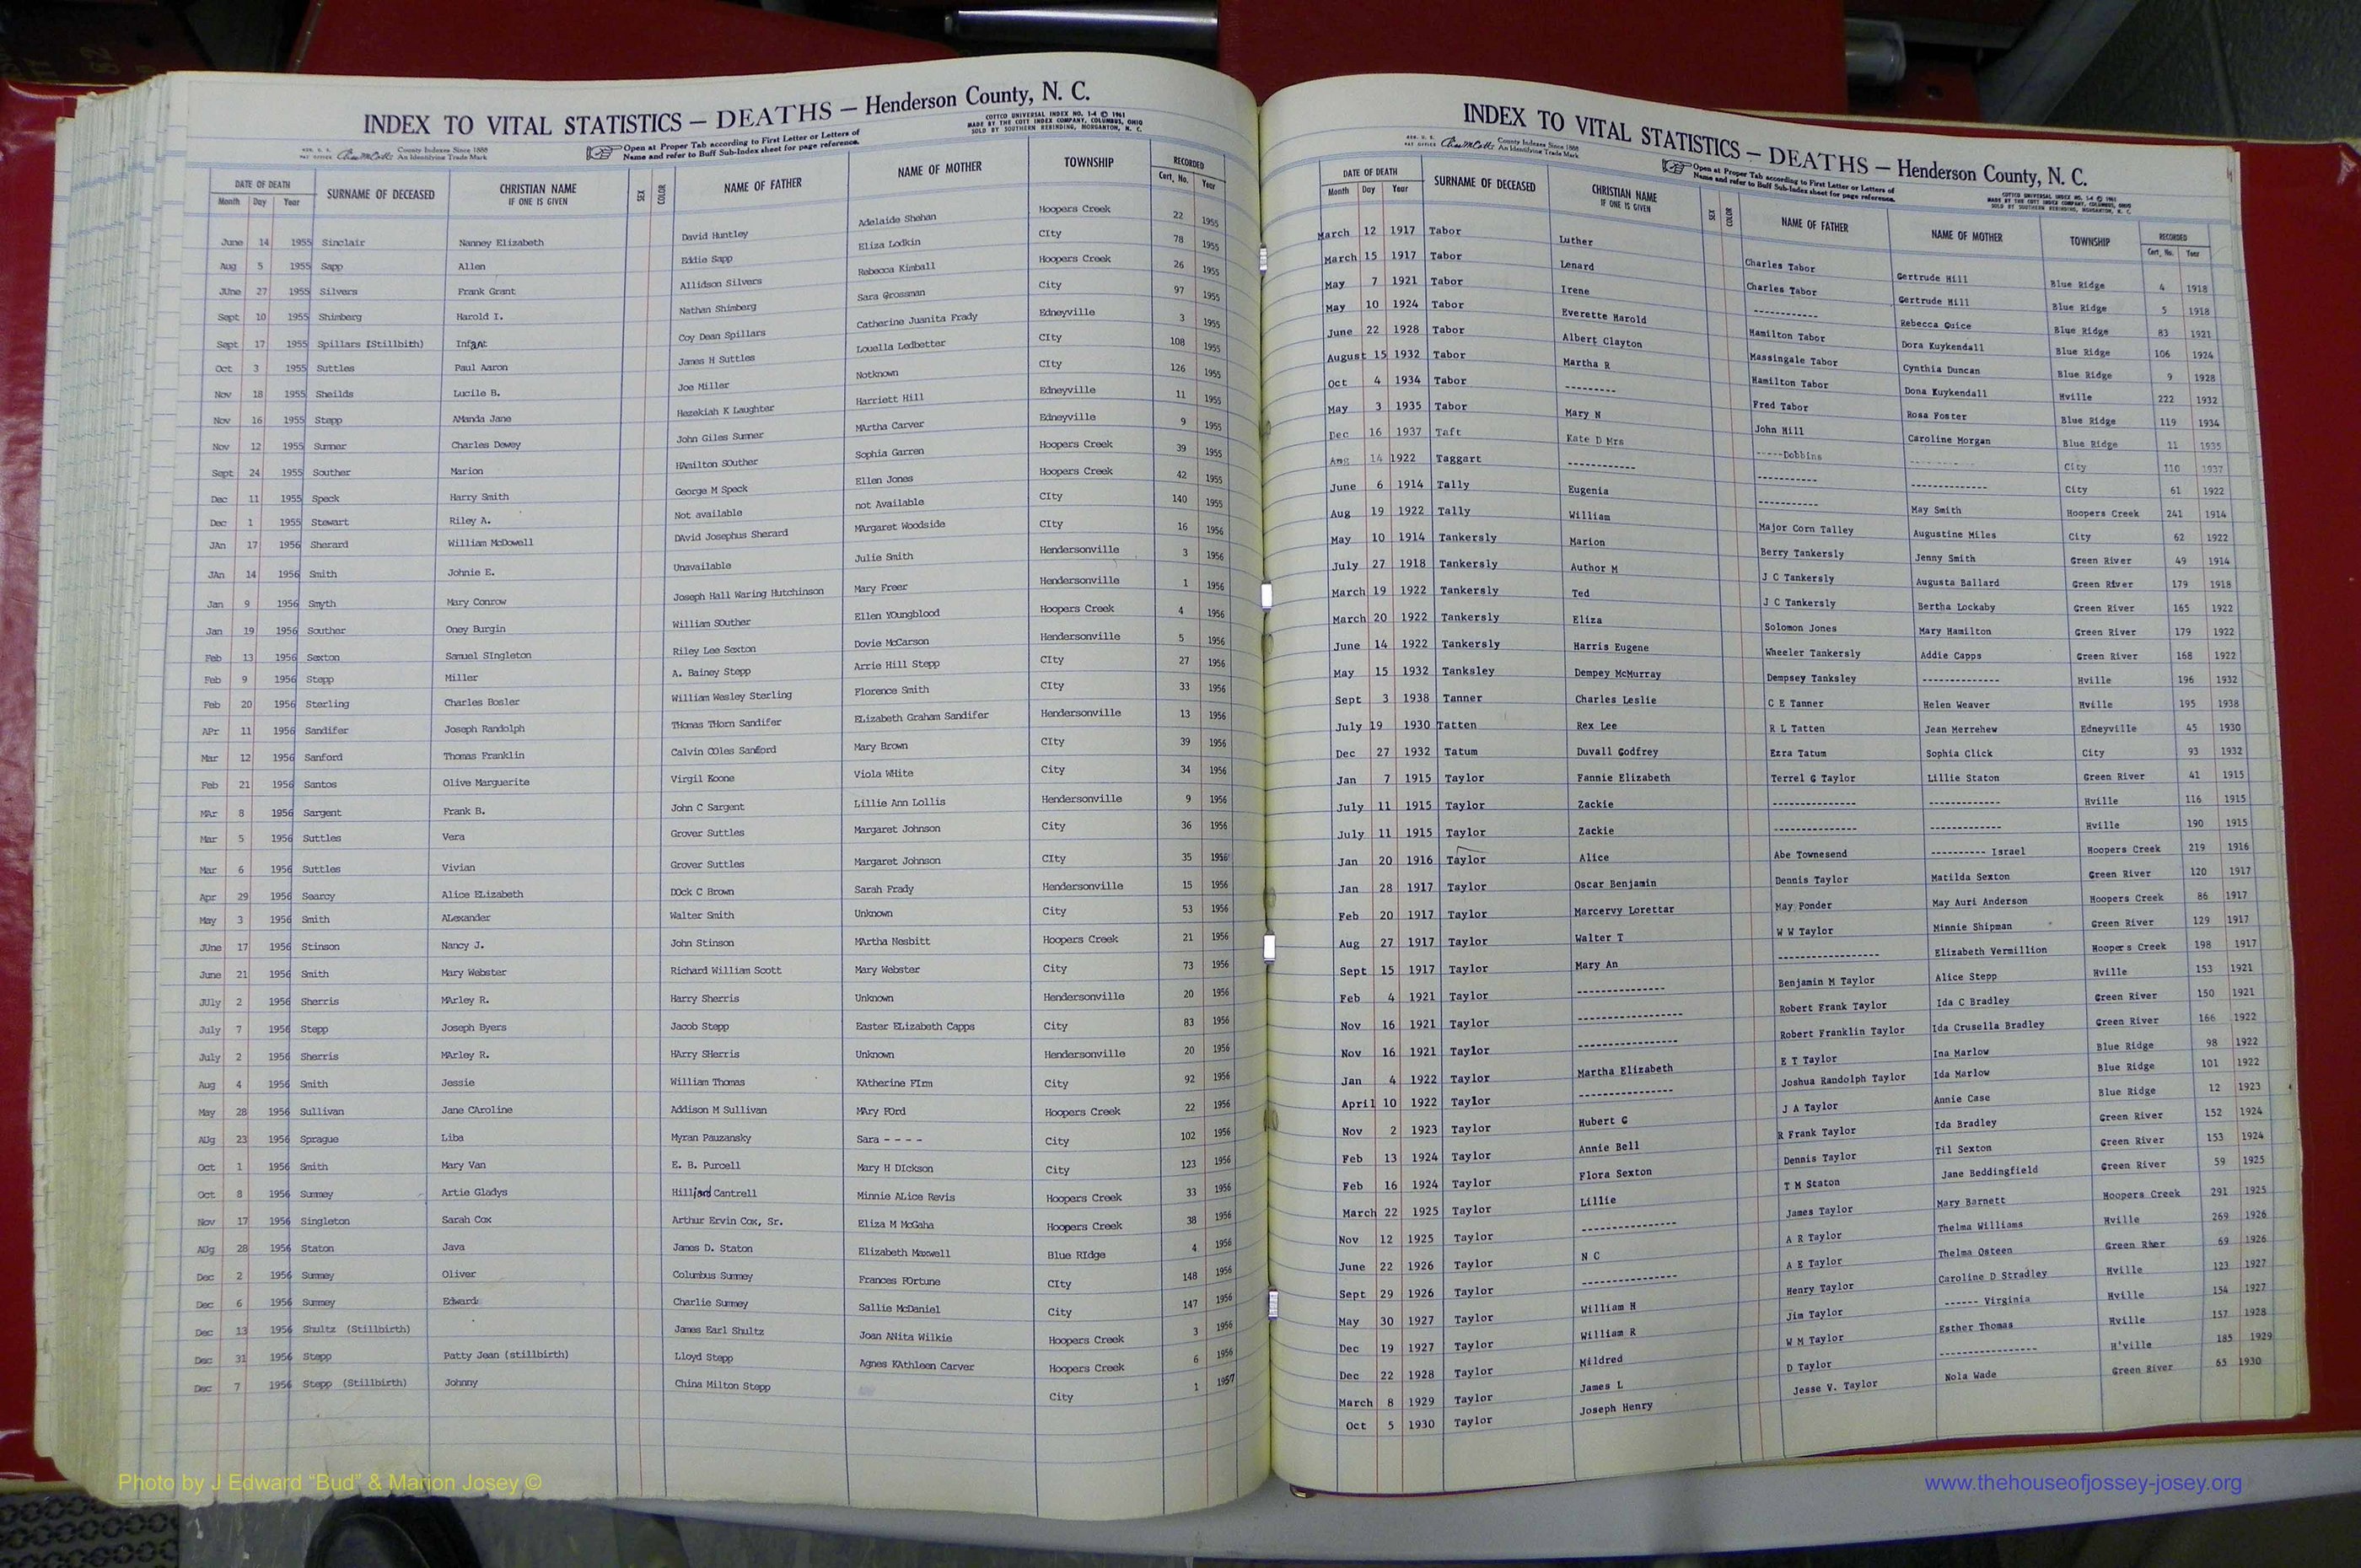 INDEX TO VITAL STATISTICS — DEATHS — Henderson County, N. C.
COTTCO UNIVERSAL INDEX NO. 1-4 © 1961
MADE BY THE COTT INDEX COMPANY, COLUMBUS, OHIO
SOLD BY SOUTHERN REBINDING, MORGANTON, N. C.
County Indexes Since 1888
An Identifying Trade Mark
Open at Proper Tab according to First Letter or Letters of
Name and refer to Buff Sub-Index sheet for page reference.
DATE OF DEATH SURNAME OF DECEASED CHRISTIAN NAME IF ONE IS GIVEN SEX COLOR NAME OF FATHER NAME OF MOTHER TOWNSHIP RECORDED
Month Day Year Cert. No. Year
June 14 1955 Sinclair Nanney Elizabeth David Huntley Adelaide Shehan Hoopers Creek 22 1955
Aug 5 1955 Sapp Allen Eddie Sapp Eliza Lodkin CIty 78 1955
JUne 27 1955 Silvers Frank Grant Allidson Silvers Rebecca Kimball Hoopers Creek 26 1955
Sept 10 1955 Shimberg Harold I. Nathan Shimberg Sara Grossman City 97 1955
Sept 17 1955 Spillars [Stillbith) Infant Coy Dean Spillars Catherine Juanita Frady Edneyville 3 1955
Oct 3 1955 Suttles Paul Aaron James H Suttles Louella Ledbetter CIty 108 1955
Nov 18 1955 Sheilds Lucile B. Joe Miller Notknown CIty 126 1955
Nov 16 1955 Stepp AManda Jane Hezekiah K Laughter Harriett Hill Edneyville 11 1955
Nov 12 1955 Sumner Charles Dewey John Giles Sumner MArtha Carver Edneyville 9 1955
Sept 24 1955 Souther Marion HAmilton SOuther Sophia Garren Hoopers Creek 39 1955
Dec 11 1955 Speck Harry Smith George M Speck Ellen Jones Hoopers Creek 42 1955
Dec 1 1955 Stewart Riley A. Not available not Available CIty 140 1955
JAn 17 1956 Sherard William McDowell DAvid Josephus Sherard MArgaret Woodside CIty 16 1956
JAn 14 1956 Smith Johnie E. Unavailable Julie Smith Hendersonville 3 1956
Jan 9 1956 Smyth Mary Conrow Joseph Hall Waring Hutchinson Mary Freer Hendersonville 1 1956
Jan 19 1956 Souther Oney Burgin William SOuther Ellen YOungblood Hoopers Creek 4 1956
Feb 13 1956 Sexton Samuel SIngleton Riley Lee Sexton Dovie McCarson Hendersonville 5 1956
Feb 9 1956 Stepp Miller A. Bainey Stepp Arrie Hill Stepp CIty 27 1956
Feb 20 1956 Sterling Charles Bosler William Wesley Sterling Florence Smith CIty 33 1956
APr 11 1956 Sandifer Joseph Randolph THomas THorn Sandifer ELizabeth Graham Sandifer Hendersonville 13 1956
Mar 12 1956 Sanford Thomas Franklin Calvin COles Sanford Mary Brown CIty 39 1956
Feb 21 1956 Santos Olive Marguerite Virgil Koone Viola WHite City 34 1956
MAr 8 1956 Sargent Frank B. John C Sargent Lillie Ann Lollis Hendersonville 9 1956
Mar 5 1956 Suttles Vera Grover Suttles Margaret Johnson City 36 1956
Mar 6 1956 Suttles Vivian Grover Suttles Margaret Johnson CIty 35 1956
Apr 29 1956 Searcy Alice ELizabeth DOck C Brown Sarah Frady Hendersonville 15 1956
May 3 1956 Smith ALexander Walter Smith Unknown City 53 1956
JUne 17 1956 Stinson Nancy J. John Stinson MArtha Nesbitt Hoopers Creek 21 1956
June 21 1956 Smith Mary Webster Richard William Scott Mary Webster City 73 1956
JUly 2 1956 Sherris MArley R. Harry Sherris Unknown Hendersonville 20 1956
July 7 1956 Stepp Joseph Byers Jacob Stepp Easter ELizabeth Capps City 83 1956
July 2 1956 Sherris MArley R. HArry SHerris Unknown Hendersonville 20 1956
Aug 4 1956 Smith Jessie William Thomas KAtherine FIrm City 92 1956
May 28 1956 Sullivan Jane CAroline Addison M Sullivan MAry FOrd Hoopers Creek 22 1956
AUg 23 1956 Sprague Liba Myran Pauzansky Sara - - - - City 102 1956
Oct 1 1956 Smith Mary Van E. B. Purcell Mary H DIckson City 123 1956
Oct 8 1956 Summey Artie Gladys Hilliard Cantrell Minnie ALice Revis Hoopers Creek 33 1956
Nov 17 1956 Singleton Sarah Cox Arthur Ervin Cox, Sr. Eliza M McGaha Hoopers Creek 38 1956
AUg 28 1956 Staton Java James D. Staton Elizabeth Maxwell Blue RIdge 4 1956
Dec 2 1956 Summey Oliver Columbus Summey Frances FOrtune CIty 148 1956
Dec 6 1956 Summey Edward Charlie Summey Sallie McDaniel City 147 1956
Dec 13 1956 Shultz (Stillbirth) James Earl Shultz Joan ANita Wilkie Hoopers Creek 3 1956
Dec 31 1956 Stepp Patty Jean (stillbirth) Lloyd Stepp Agnes KAthleen Carver Hoopers Creek 6 1956
Dec 7 1956 Stepp (Stillbirth) Johnny China Milton Stepp City 1 1957
Photo by J Edward “Bud” & Marion Josey ©
INDEX TO VITAL STATISTICS — DEATHS — Henderson County, N. C.
County Indexes Since 1888
An Identifying Trade Mark
Open at Proper Tab according to First Letter or Letters of
Name and refer to Buff Sub-Index sheet for page reference.
COTTCO UNIVERSAL INDEX NO. 1-4 © 1961
MADE BY THE COTT INDEX COMPANY, COLUMBUS, OHIO
SOLD BY SOUTHERN REBINDING, MORGANTON, N. C.
DATE OF DEATH SURNAME OF DECEASED CHRISTIAN NAME IF ONE IS GIVEN SEX COLOR NAME OF FATHER NAME OF MOTHER TOWNSHIP RECORDED
Month Day Year Cert. No. Year
March 12 1917 Tabor Luther Charles Tabor Gertrude Hill Blue Ridge 4 1918
March 15 1917 Tabor Lenard Charles Tabor Gertrude Hill Blue Ridge 5 1918
May 7 1921 Tabor Irene ------------ Rebecca Guice Blue Ridge 83 1921
May 10 1924 Tabor Everette Harold Hamilton Tabor Dora Kuykendall Blue Ridge 106 1924
June 22 1928 Tabor Albert Clayton Massingale Tabor Cynthia Duncan Blue Ridge 9 1928
August 15 1932 Tabor Martha R Hamilton Tabor Dona Kuykendall Hville 222 1932
Oct 4 1934 Tabor --------- Fred Tabor Rosa Foster Blue Ridge 119 1934
May 3 1935 Tabor Mary N John Hill Caroline Morgan Blue Ridge 11 1935
Dec 16 1937 Taft Kate D Mrs -----Dobbins ------------- City 110 1937
Aug 14 1922 Taggart ------------ ----------- -------------- City 61 1922
June 6 1914 Tally Eugenia ----------- May Smith Hoopers Creek 241 1914
Aug 19 1922 Tally William Major Corn Talley Augustine Miles City 62 1922
May 10 1914 Tankersly Marion Berry Tankersly Jenny Smith Green River 49 1914
July 27 1918 Tankersly Author M J C Tankersly Augusta Ballard Green River 179 1918
March 19 1922 Tankersly Ted J C Tankersly Bertha Lockaby Green River 165 1922
March 20 1922 Tankersly Eliza Solomon Jones Mary Hamilton Green River 179 1922
June 14 1922 Tankersly Harris Eugene Wheeler Tankersly Addie Capps Green River 168 1922
May 15 1932 Tanksley Dempey McMurray Dempsey Tanksley -------------- Hville 196 1932
Sept 3 1938 Tanner Charles Leslie C E Tanner Helen Weaver Hville 195 1938
July 19 1930 Tatten Rex Lee R L Tatten Jean Merrehew Edneyville 45 1930
Dec 27 1932 Tatum Duvall Godfrey Ezra Tatum Sophia Click City 93 1932
Jan 7 1915 Taylor Fannie Elizabeth Terrel G Taylor Lillie Staton Green River 41 1915
July 11 1915 Taylor Zackie --------------- ------------- Hville 116 1915
July 11 1915 Taylor Zackie --------------- ------------- Hville 190 1915
Jan 20 1916 Taylor Alice Abe Townesend ---------- Israel Hoopers Creek 219 1916
Jan 28 1917 Taylor Oscar Benjamin Dennis Taylor Matilda Sexton Green River 120 1917
Feb 20 1917 Taylor Marcervy Lorettar May Ponder May Auri Anderson Hoopers Creek 86 1917
Aug 27 1917 Taylor Walter T W W Taylor Minnie Shipman Green River 129 1917
Sept 15 1917 Taylor Mary An ------------------ Elizabeth Vermillion Hoopers Creek 198 1917
Feb 4 1921 Taylor --------------- Benjamin M Taylor Alice Stepp Hville 153 1921
Nov 16 1921 Taylor ------------------ Robert Frank Taylor Ida C Bradley Green River 150 1921
Nov 16 1921 Taylor ----------------- Robert Franklin Taylor Ida Crusella Bradley Green River 166 1922
Jan 4 1922 Taylor Martha Elizabeth E T Taylor Ina Marlow Blue Ridge 98 1922
April 10 1922 Taylor ---------------- Joshua Randolph Taylor Ida Marlow Blue Ridge 101 1922
Nov 2 1923 Taylor Hubert G J A Taylor Annie Case Blue Ridge 12 1923
Feb 13 1924 Taylor Annie Bell R Frank Taylor Ida Bradley Green River 152 1924
Feb 16 1924 Taylor Flora Sexton Dennis Taylor Til Sexton Green River 153 1924
March 22 1925 Taylor Lillie T M Staton Jane Beddingfield Green River 59 1925
Nov 12 1925 Taylor ---------------- James Taylor Mary Barnett Hoopers Creek 291 1925
June 22 1926 Taylor N C A R Taylor Thelma Williams Hville 269 1926
Sept 29 1926 Taylor ---------------- A E Taylor Thelma Osteen Green 69 1926
May 30 1927 Taylor William H Henry Taylor Caroline D Stradley Hville 123 1927
Dec 19 1927 Taylor William R Jim Taylor ------ Virginia Hville 154 1927
Dec 22 1928 Taylor Mildred W M Taylor Esther Thomas Hville 157 1928
March 8 1929 Taylor James L D Taylor ---------------- H'ville 185 1929
Oct 5 1930 Taylor Joseph Henry Jesse V. Taylor Nola Wade Green River 65 1930
www.thehouseofjossey-josey.org